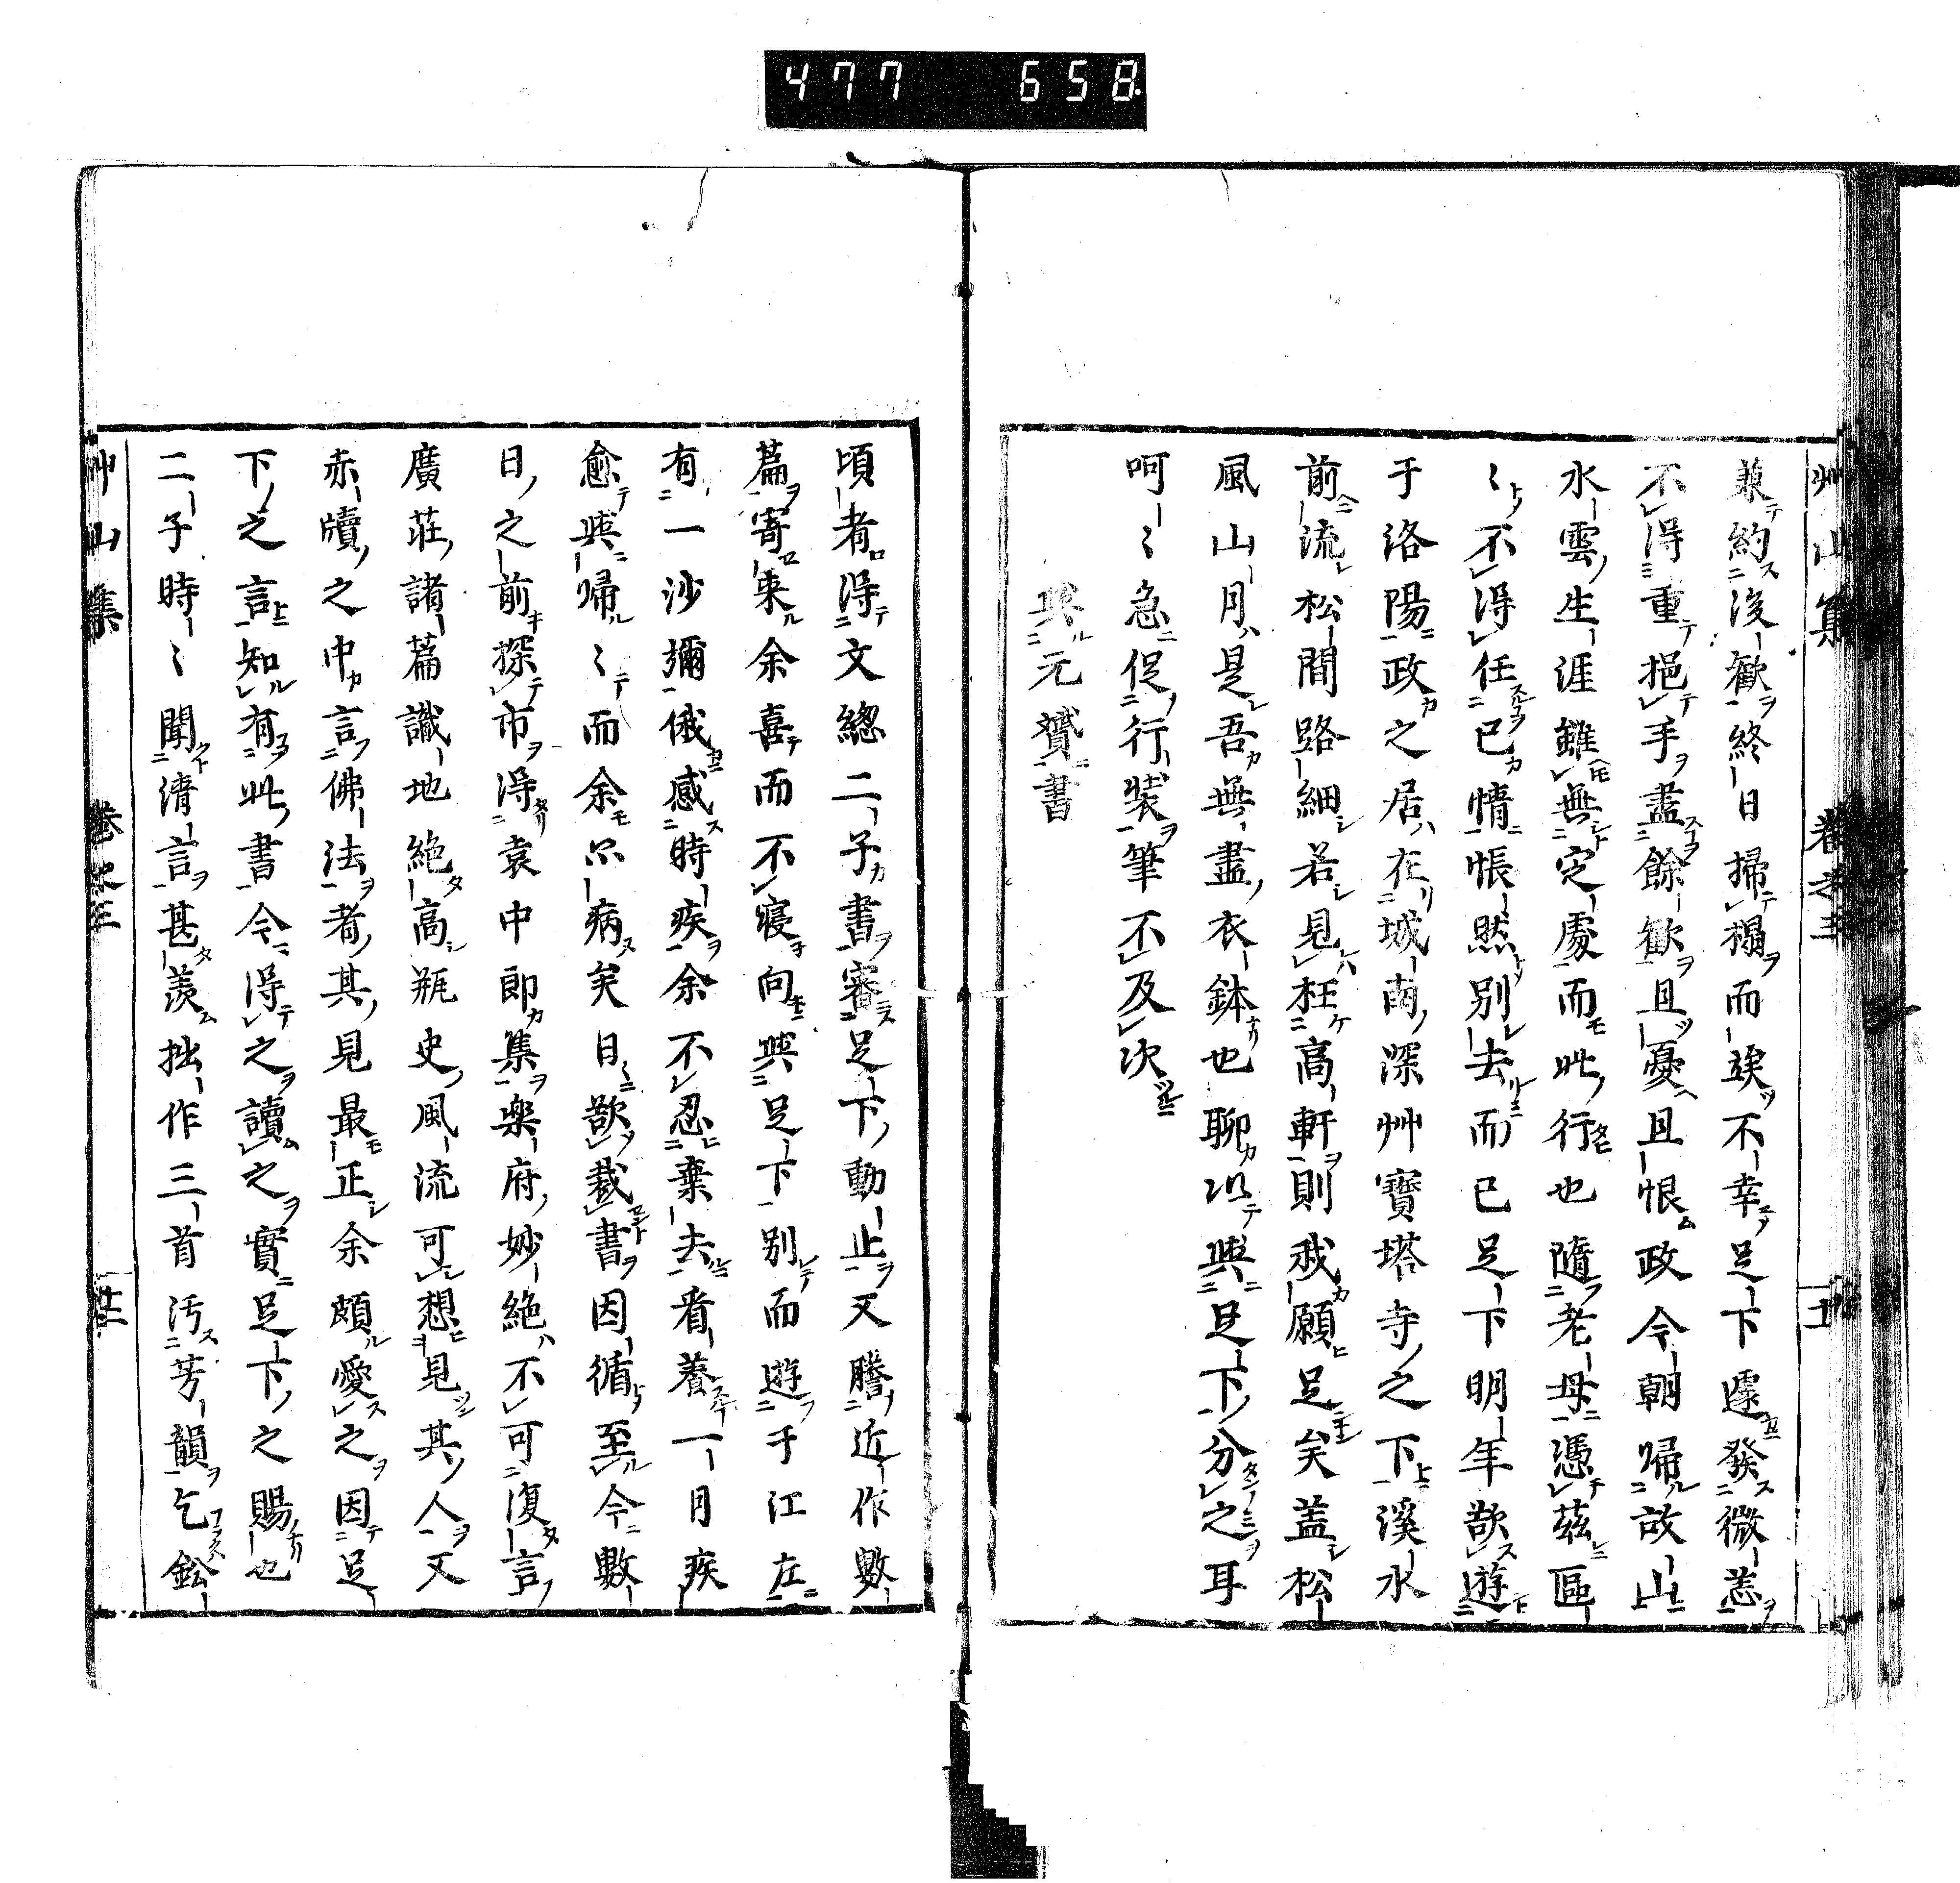 477 658
艸山集 卷之三
兼約後歡終日掃榻而竢不幸足下遽發微恙
不得重挹手盡餘歡且憂且恨政今朝歸故山
水雲生涯雖無定處而此行也隨老母憑茲區
〻不得任己情悵然別去而已足下明年欲遊
于洛陽政之居在城南深艸寶塔寺之下溪水
前流松間路細若見枉高軒則我願足矣蓋松
風山月是吾無盡衣鉢也聊以與足下分之耳
呵〻急促行裝筆不及次
與元贇書
頃者得文總二子書審足下動止又謄近作數
篇寄來余喜而不寢向與足下別而遊于江左
有一沙彌俄感時疾余不忍棄去看養一月疾
愈與歸〻而余亦病矣日欲裁書因循至今數
日之前探市得袁中郎集樂府妙絕不可復言
廣莊諸篇識地絕高瓶史風流可想見其人又
赤牘之中言佛法者其見最正余頗愛之因足
下之言知有此書今得之讀之實足下之賜也
二子時〻聞清言甚羨拙作三首汚芳韻乞鉛
艸山集 卷之三